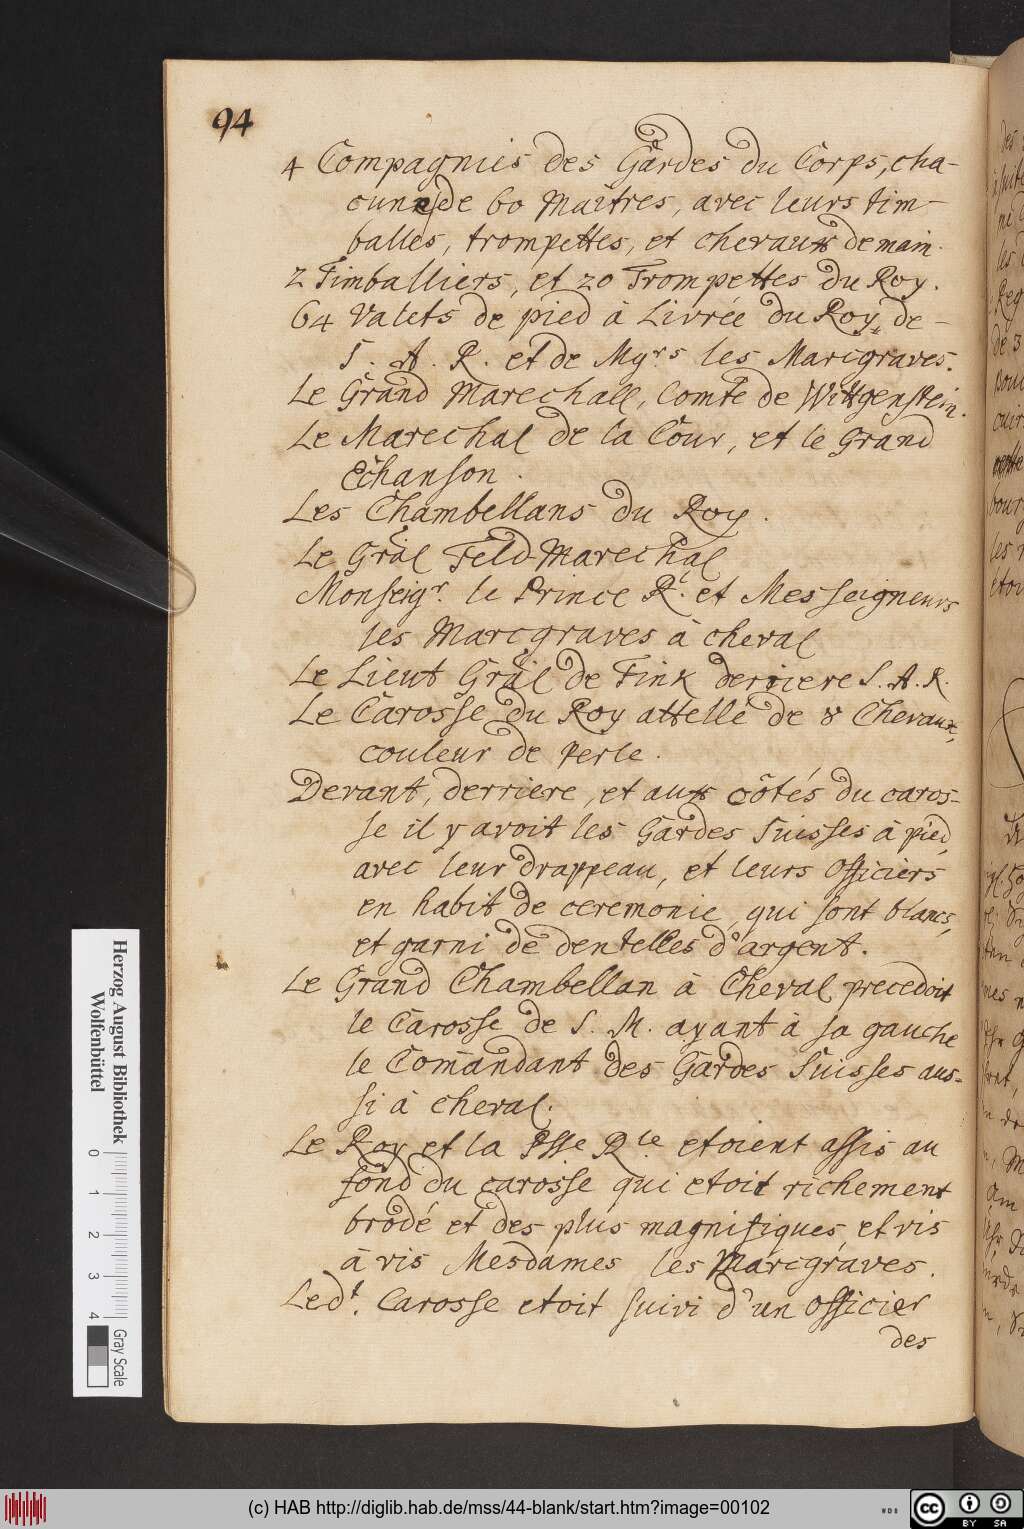 94
4 Compagnies des Gardes du Corps, cha-
cune de 60 Maitres, avec leurs tim-
balles, trompettes, et chevaux de main.
2 Timballiers, et 20 Trompettes du Roy.
64 Valets de pied à Livrée du Roy, de-
S. A. R. et de Mgrs les Marcgraves.
Le Grand Marechall, Comte de Wittgenstein.
Le Marechal de la Cour, et le Grand
Echanson.
Les Chambellans du Roy.
Le Gräl FeldMarechal
Monseigr. le Prince Rl. et Messeigneurs
les Marcgraves à cheval
Le Lieut Gräl de Fink derriere S. A. R.
Le Carosse du Roy attellé de 8 Chevaux,
couleur de Perle.
Devant, derriere, et aux côtés du caros-
se il y avoit les Gardes Suisses à pied,
avec leur drappeau, et leurs Officiers
en habit de ceremonie, qui sont blancs,
et garni de dentelles d'argent.
Le Grand Chambellan à Cheval precedoit
le Carosse de S. M. ayant à sa gauche
le Comandant des Gardes Suisses aus-
si à cheval.
Le Roy et la Psse Rle. etoient assis au
fond du carosse qui etoit richement
brodé et des plus magnifiques, et vis
à vis Mesdames les Marcgraves.
Ledt. Carosse etoit suivi d'un Officier
des
Herzog August Bibliothek
Wolfenbüttel
0 1 2 3 4
Gray Scale
(c) HAB http://diglib.hab.de/mss/44-blank/start.htm?image=00102
WDB
cc BY SA